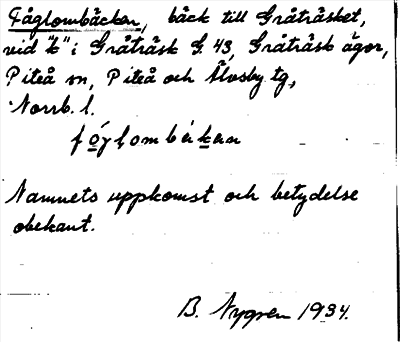 Fåglombäcken, bäck till Gråträsket,
vid "k" i Gråträsk G. 43, Gråträsk ägor,
Piteå sn, Piteå och Älvsby tg,
Norrb. l.
fóglombäkan
Namnets uppkomst och betydelse
obekant.
B. Nygren 1934.